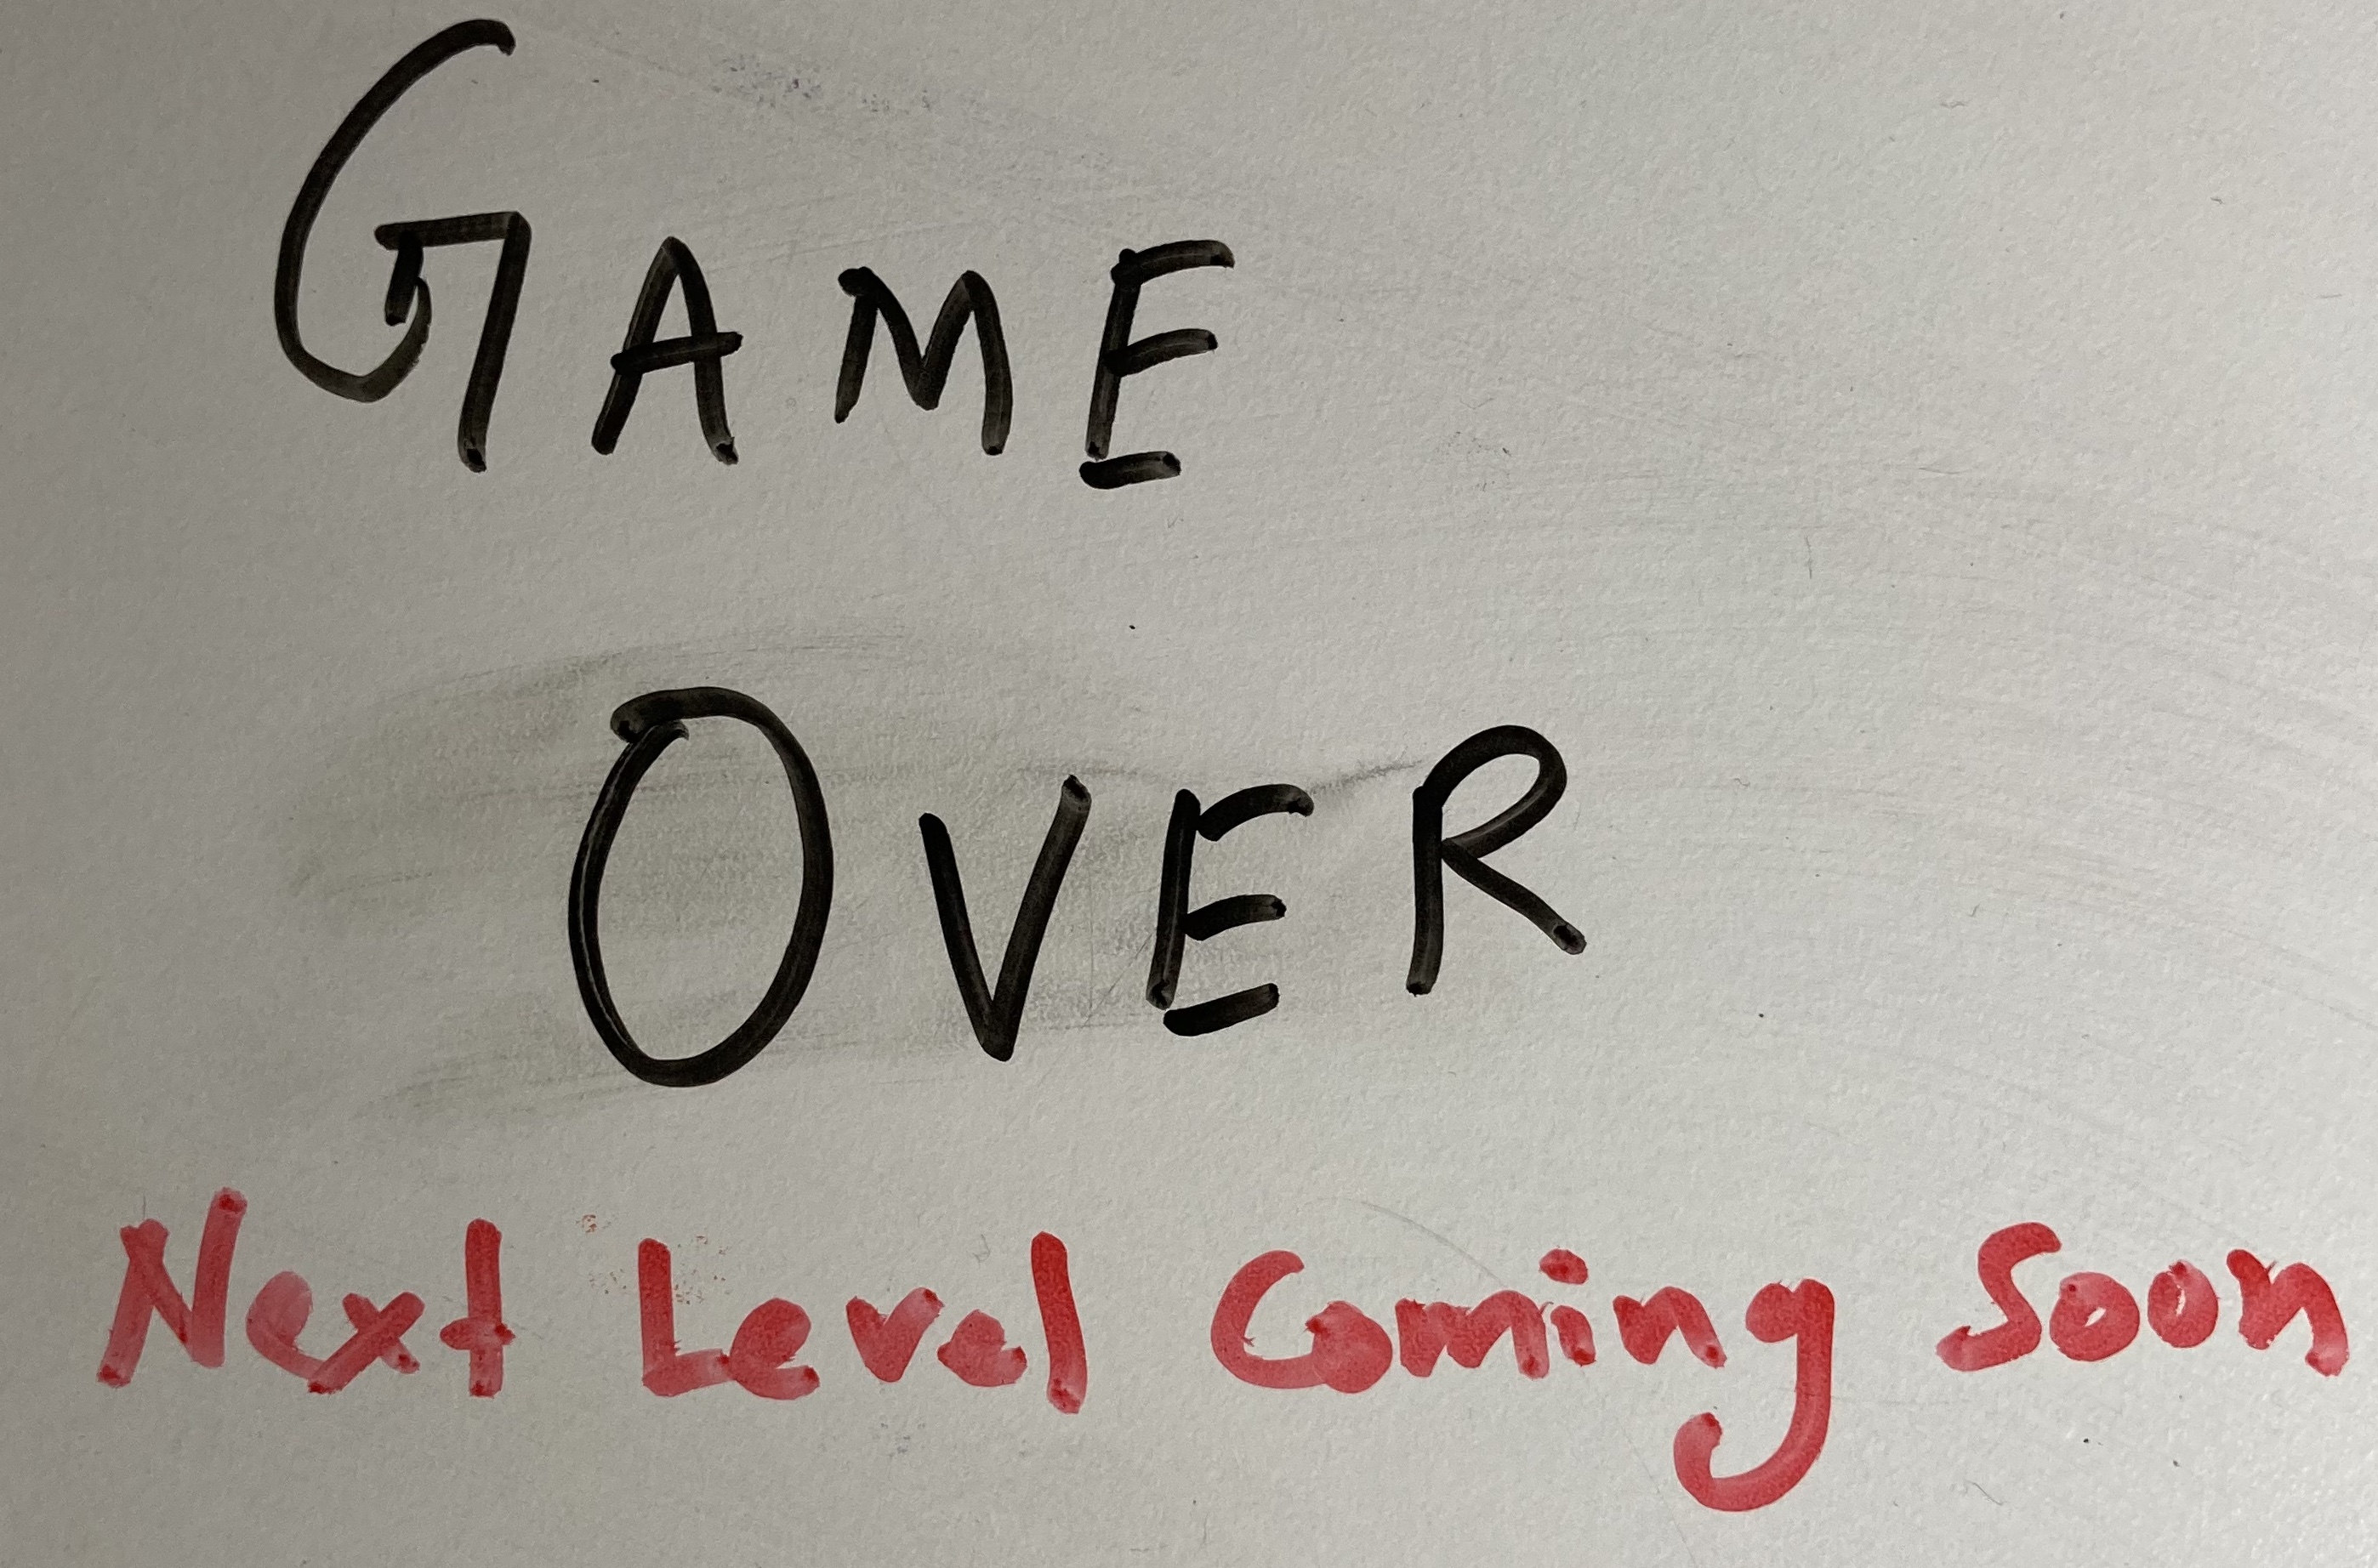 GAME
OVER
Next Level Coming Soon